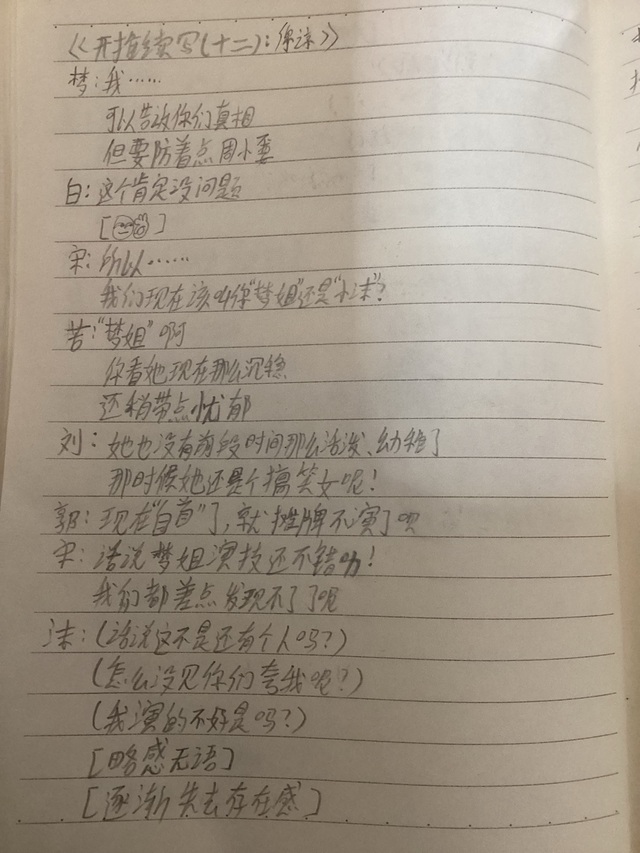 《开指续写(十二):伱沫》
梦:我……
可以告放你们真相
但要防着点周小垩
白:这个肯定没问题
[]
宋:所以……
我们现在该叫你"梦姐"还是"小沫"?
苦:"梦姐"啊
你看她现在那么沉稳
还稍带点忧郁
刘:她也没有前段时间那么活泼、幼稚了
那时候她还是个搞笑女呢!
郭:现在"自首"了,就摊牌不演了呗
宋:话说梦姐演技还不错呦!
我们都差点发现不了了呢
沫:(话说这不是还有个人吗?)
(怎么没见你们夸我呢?)
(我演的不好是吗?)
[略感无语]
[逐渐失去存在感]